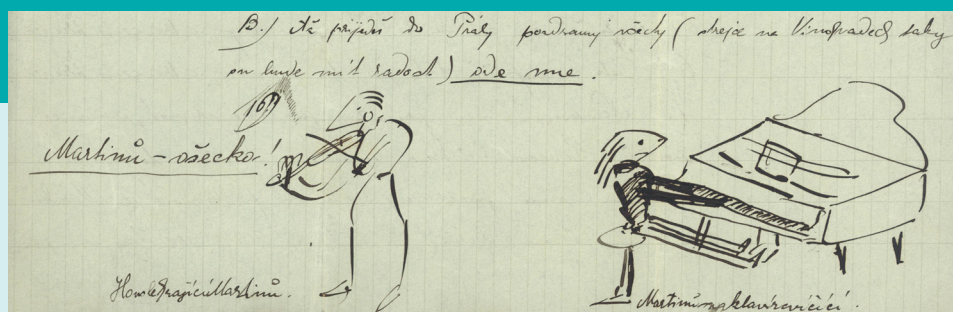 B.) Až přijdeš do Prahy pozdravuj všecky (strejce na Vinohradech taky
on bude mít radost) ode mne.
Martinů – všecko!
Housle hrající Martinů.
Martinů na klavír cvičící.